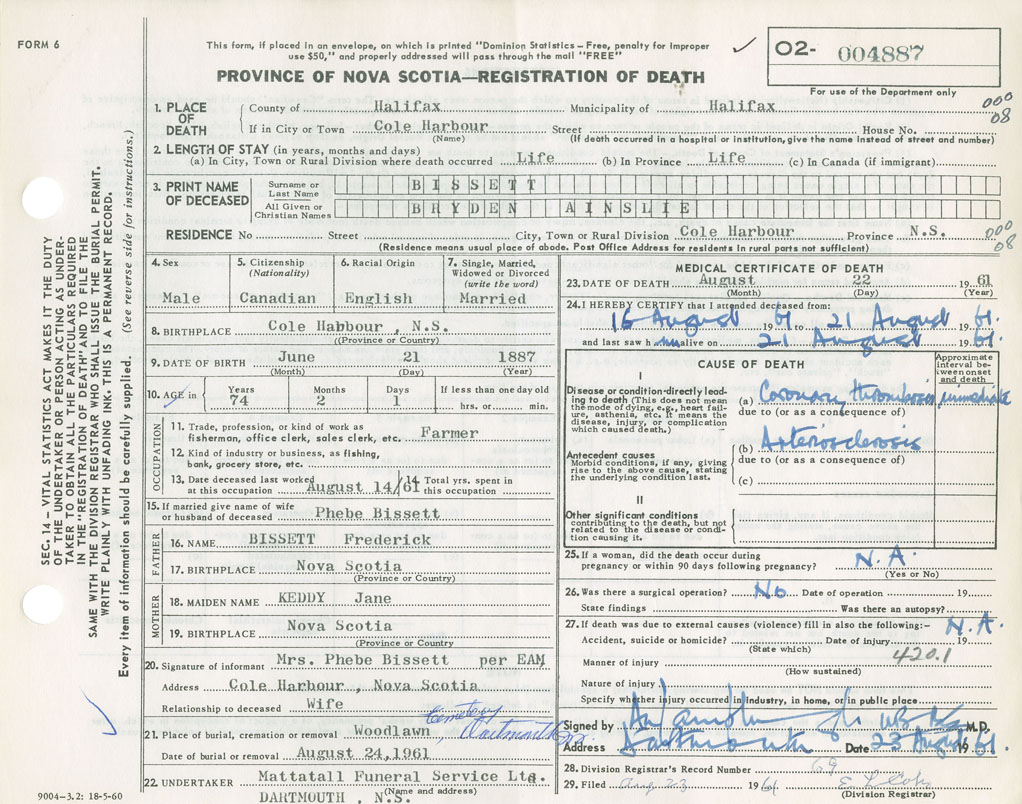 FORM 6
This form, if placed in an envelope, on which is printed "Dominion Statistics – Free, penalty for improper
use $50," and properly addressed will pass through the mail "FREE"
02- 004887
PROVINCE OF NOVA SCOTIA—REGISTRATION OF DEATH
For use of the Department only
1. PLACE OF DEATH
County of Halifax Municipality of Halifax 000
If in City or Town Cole Harbour Street House No. 08
(Name) (If death occurred in a hospital or institution, give the name instead of street and number)
2. LENGTH OF STAY (in years, months and days)
(a) In City, Town or Rural Division where death occurred Life (b) In Province Life (c) In Canada (if immigrant)
3. PRINT NAME OF DECEASED
Surname or Last Name BISSETT
All Given or Christian Names BRYDEN AINSLIE
RESIDENCE No Street City, Town or Rural Division Cole Harbour Province N.S. 000 08
(Residence means usual place of abode. Post Office Address for residents in rural parts not sufficient)
4. Sex
Male
5. Citizenship
(Nationality)
Canadian
6. Racial Origin
English
7. Single, Married,
Widowed or Divorced
(write the word)
Married
8. BIRTHPLACE Cole Habbour , N.S.
(Province or Country)
9. DATE OF BIRTH June 21 1887
(Month) (Day) (Year)
10. AGE in
Years Months Days If less than one day old
74 2 1 hrs. or min.
OCCUPATION
11. Trade, profession, or kind of work as
fisherman, office clerk, sales clerk, etc. Farmer
12. Kind of industry or business, as fishing,
bank, grocery store, etc.
13. Date deceased last worked
at this occupation August 14/61
14. Total yrs. spent in
this occupation
15. If married give name of wife
or husband of deceased Phebe Bissett
FATHER
16. NAME BISSETT Frederick
17. BIRTHPLACE Nova Scotia
(Province or Country)
MOTHER
18. MAIDEN NAME KEDDY Jane
19. BIRTHPLACE Nova Scotia
(Province or Country)
20. Signature of informant Mrs. Phebe Bissett per EAM
Address Cole Harbour, Nova Scotia
Relationship to deceased Wife
21. Place of burial, cremation or removal Woodlawn Cemetery Dartmouth
Date of burial or removal August 24,1961
22. UNDERTAKER Mattatall Funeral Service Ltd.
(Name and address)
DARTMOUTH , N.S.
9004-3.2: 18-5-60
MEDICAL CERTIFICATE OF DEATH
23. DATE OF DEATH August 22 1961
(Month) (Day) (Year)
24. I HEREBY CERTIFY that I attended deceased from:
16 August 1961 to 21 August 1961.
and last saw him alive on 21 August 1961.
CAUSE OF DEATH
Approximate interval between onset and death
I
Disease or condition directly leading to death (This does not mean
the mode of dying, e.g., heart failure, asthenia, etc. It means the
disease, injury, or complication
which caused death.)
(a) Coronary thrombosis immediate
due to (or as a consequence of)
Antecedent causes
Morbid conditions, if any, giving
rise to the above cause, stating
the underlying condition last.
(b) Arteriosclerosis
due to (or as a consequence of)
(c)
II
Other significant conditions
contributing to the death, but not
related to the disease or condition causing it.
25. If a woman, did the death occur during
pregnancy or within 90 days following pregnancy? N.A.
(Yes or No)
26. Was there a surgical operation? No Date of operation 19
State findings Was there an autopsy?
27. If death was due to external causes (violence) fill in also the following:– N.A.
Accident, suicide or homicide? Date of injury 19
(State which) 420.1
Manner of injury
(How sustained)
Nature of injury
Specify whether injury occurred in industry, in home, or in public place
Signed by M.D.
Address Dartmouth Date 23 August 1961.
28. Division Registrar's Record Number 69
29. Filed Aug 23 1961
(Division Registrar)
SEC. 14 – VITAL STATISTICS ACT MAKES IT THE DUTY
OF THE UNDERTAKER OR PERSON ACTING AS UNDER-
TAKER TO OBTAIN ALL THE PARTICULARS REQUIRED
IN THE "REGISTRATION OF DEATH" AND TO FILE THE
SAME WITH THE DIVISION REGISTRAR WHO SHALL ISSUE THE BURIAL PERMIT.
WRITE PLAINLY WITH UNFADING INK. THIS IS A PERMANENT RECORD.
Every item of information should be carefully supplied. (See reverse side for instructions.)